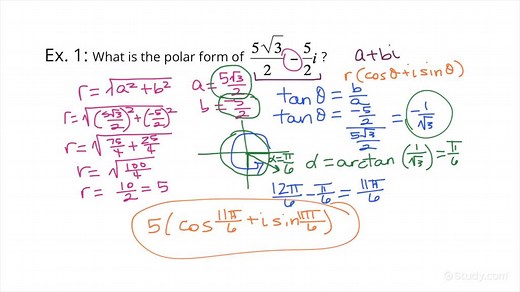 Ex. 1: What is the polar form of 5√3/2 − 5/2 i ?
a+bi
r(cosθ+isinθ)
r=√a²+b²
a=5√3/2
b=-5/2
r=√(5√3/2)²+(-5/2)²
r=√75/4+25/4
r=√100/4
r=10/2=5
tanθ=b/a
tanθ=-5/2/5√3/2=-1/√3
α=π/6
α=arctan(1/√3)=π/6
12π/6-π/6=11π/6
5(cos 11π/6+i sin 11π/6)
Study.com